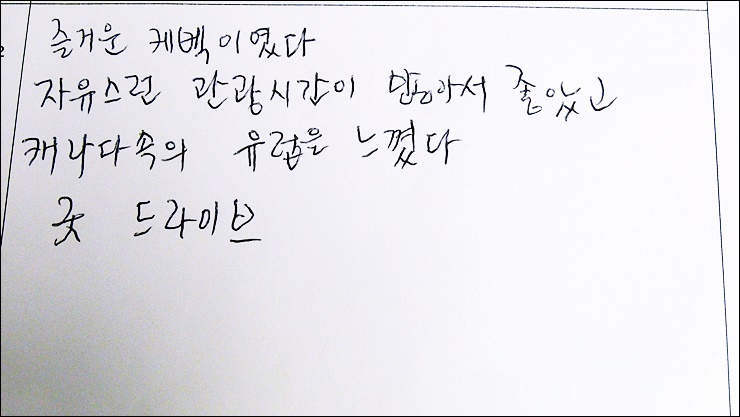 즐거운 퀘벡이였다
자유스런 관광시간이 많아서 좋았고
캐나다속의 유럽을 느꼈다
굿 드라이브